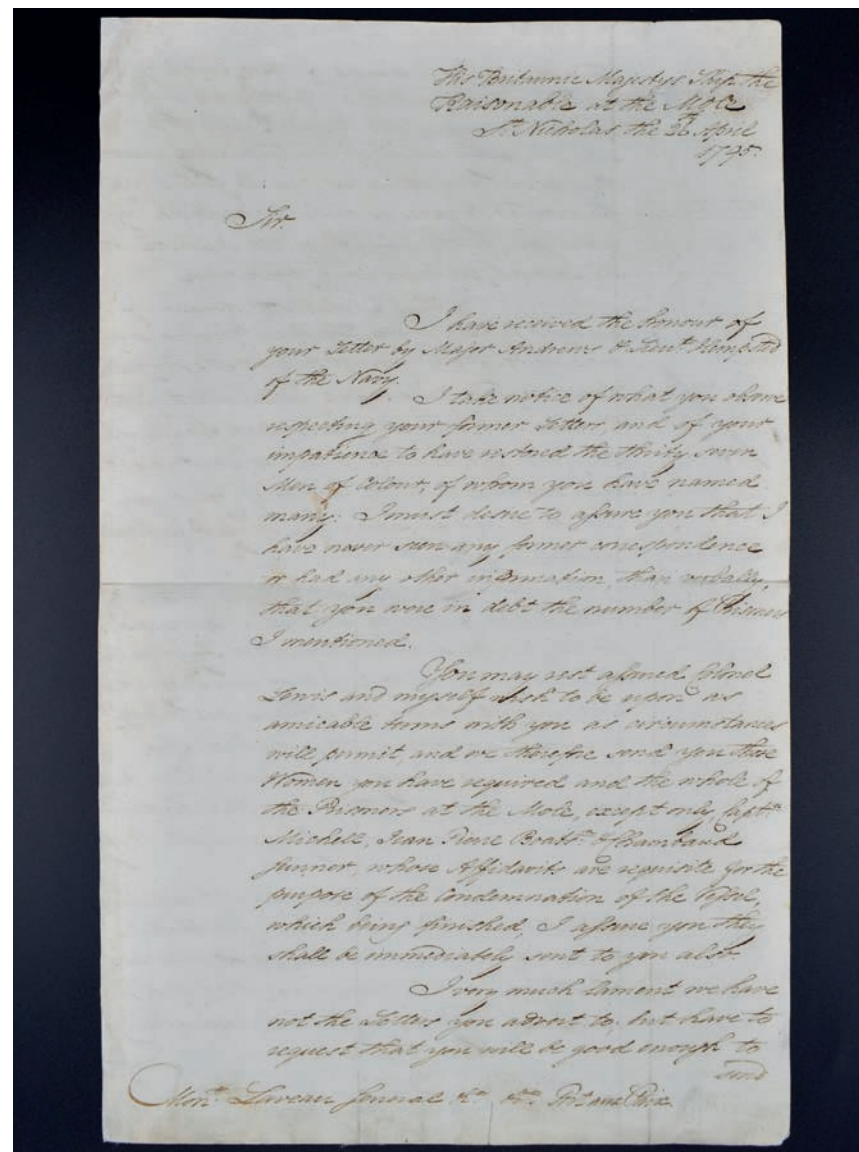 His Britannic Majestys Ship the
Raisonable at the Mole
St. Nicholas the 26th April
1795.
Sir.
I have received the honour of
your Letter by Major Andrews & Lieut. Hempsted
of the Navy.
I take notice of what you observe
respecting your former Letters and of your
impatience to have restored the thirty seven
Men of Colour, of whom you have named
many: I must desire to assure you that I
have never seen any former correspondence
or had any other information, than verbally,
that you were in debt the number of Prisoners
I mentioned.
You may rest assured Colonel
Lewis and myself wish to be upon as
amicable terms with you as circumstances
will permit, and we therefore send you those
Women you have required and the whole of
the Prisoners at the Mole, except only Captn.
Michell, Jean Boatsn. & Chambaud
Gunner, whose Affidavits are requisite for the
purpose of the Condemnation of the Vessel,
which being finished, I assure you they
shall be immediately sent to you also.
I very much lament we have
not the Letters you advert to, but have to
request that you will be good enough to
send
Monr. Laveau General &c. &c. Port aux Paix